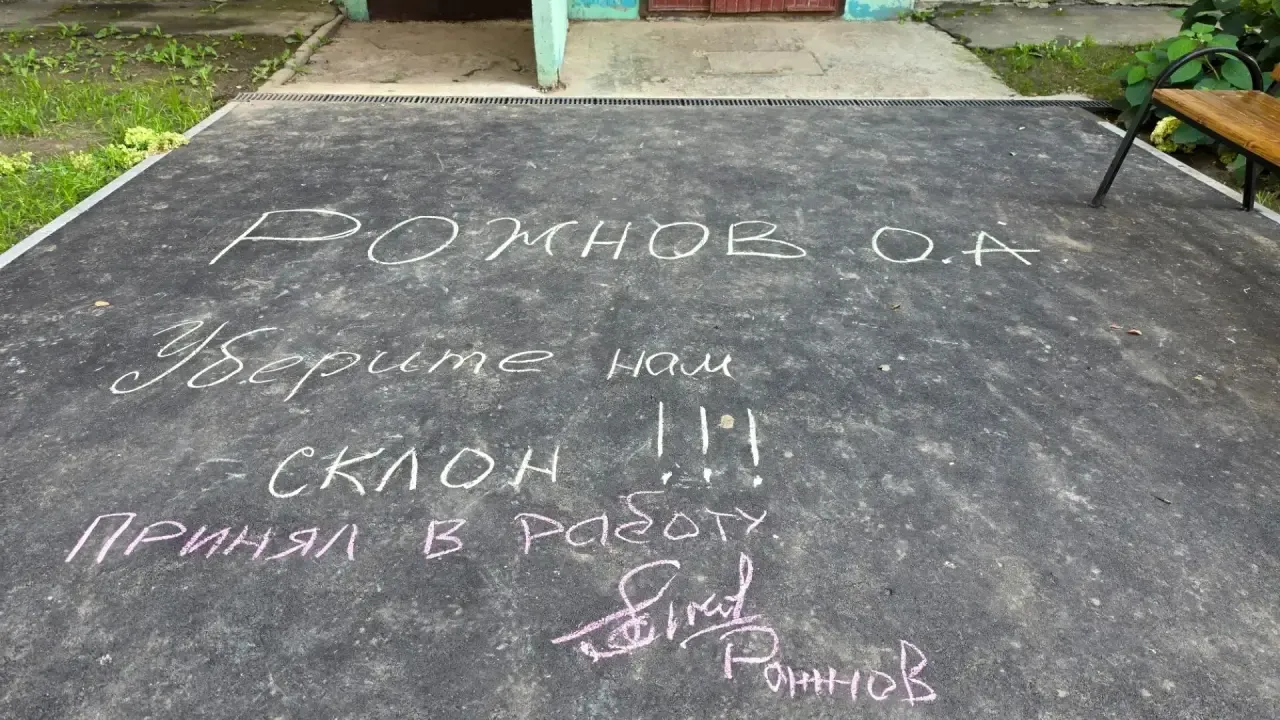 РОЖНОВ О.А
Уберите нам
склон !!!
Принял в работу
Рожнов